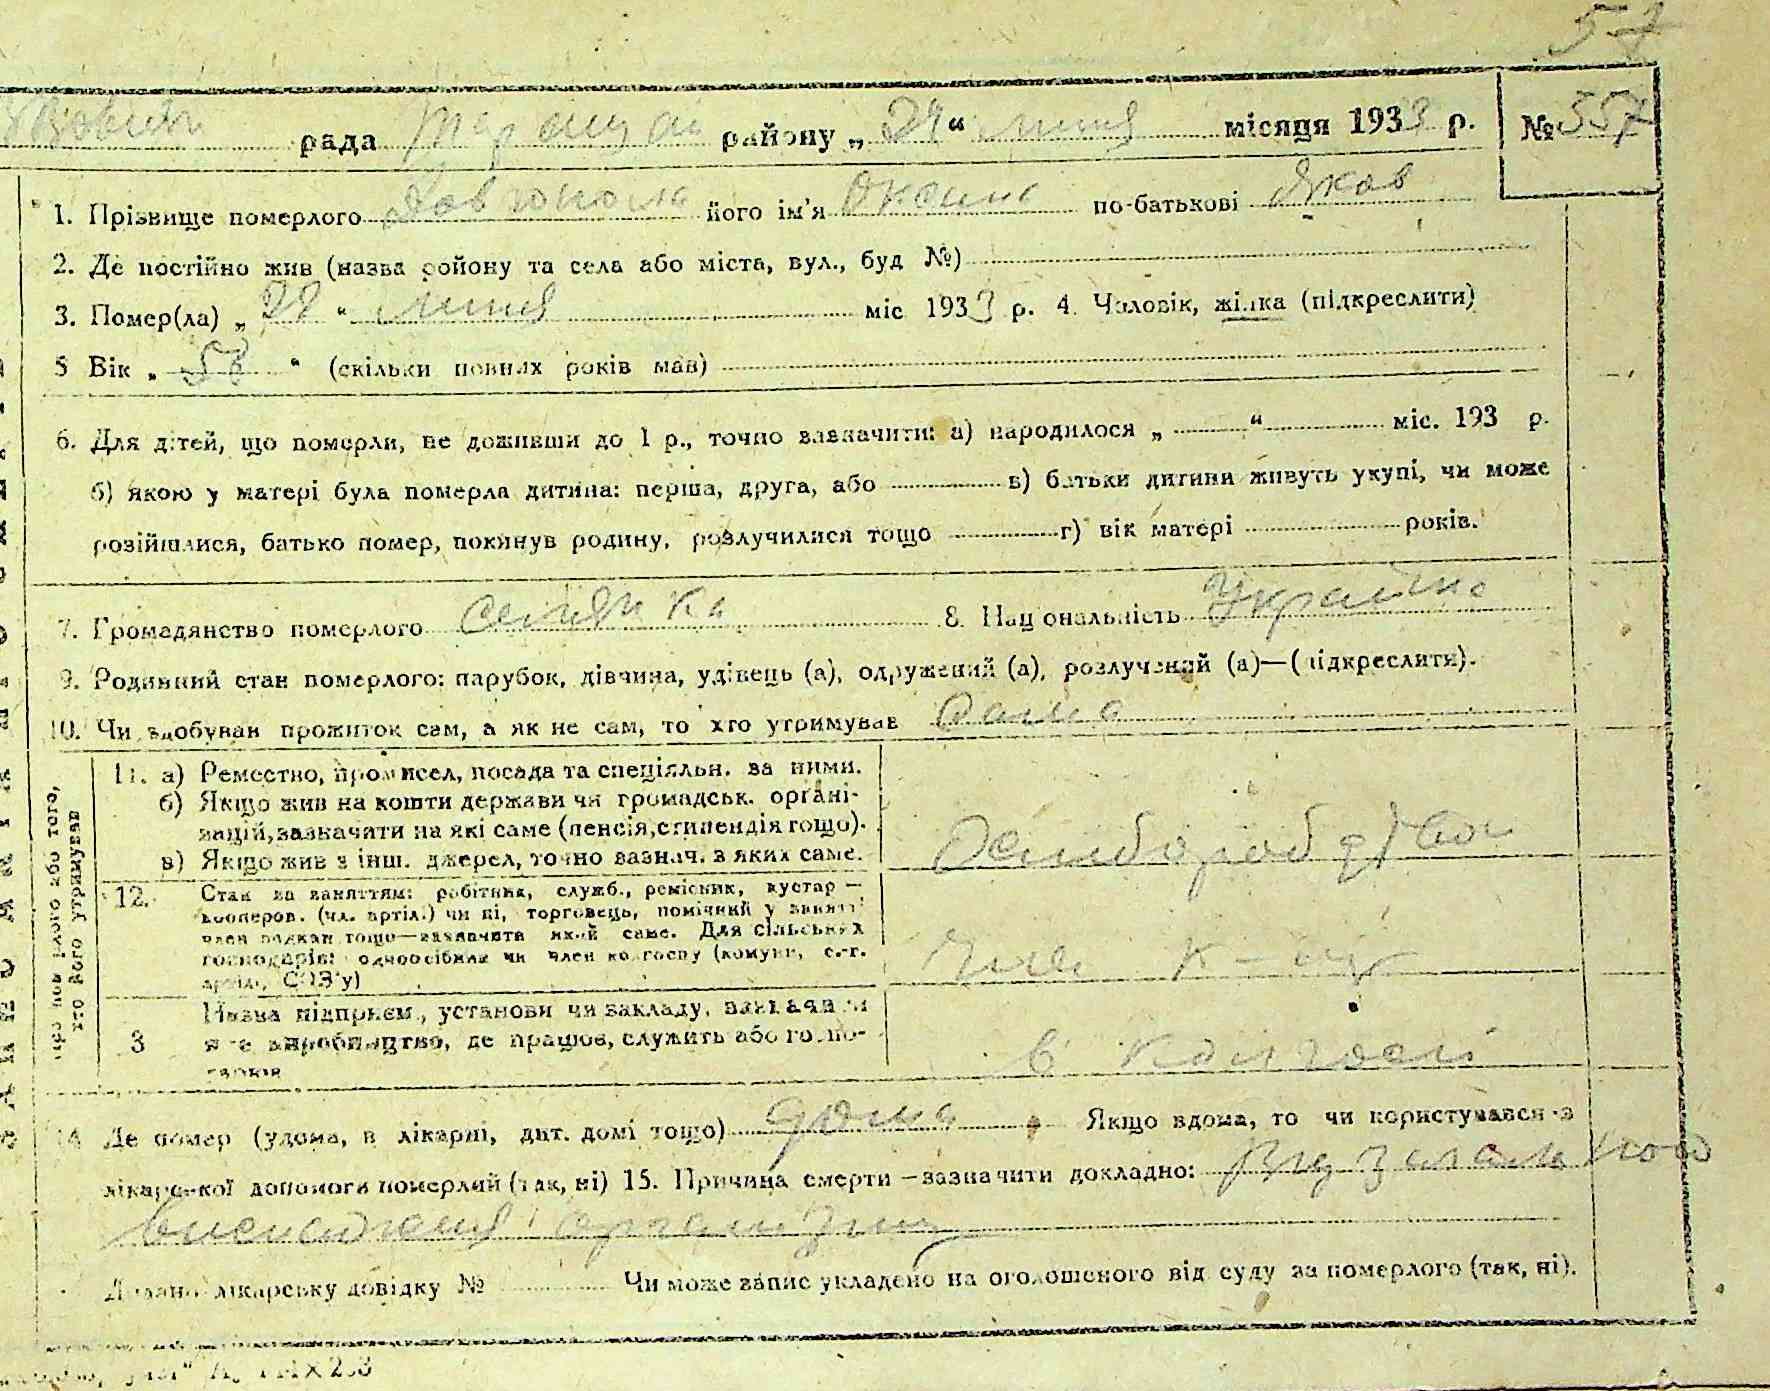 57
рада Таращан району „24“ липня місяця 1933 р. № 557
1. Прізвище померлого Довгополa його ім'я Оксина по-батькові Яков
2. Де постійно жив (назва району та села або міста, вул., буд №)
3. Помер(ла) „22“ липня міс 1933 р. 4. Чоловік, жінка (підкреслити)
5 Вік „58“ (скільки повних років мав)
6. Для дітей, що померли, не доживши до 1 р., точно зазначити: а) народилося „ “ міс. 193 р.
б) якою у матері була померла дитина: перша, друга, або в) батьки дитини живуть укупі, чи може
розійшлися, батько помер, покинув родину, розлучилися тощо г) вік матері років.
7. Громадянство померлого селянка 8. Національність Україна
9. Родинний стан померлого: парубок, дівчина, удівець (а), одружений (а), розлучений (а)—(підкреслити).
10. Чи здобував прожиток сам, а як не сам, то хто утримував Сама
про пом рлого або того, хто його утримував
11. а) Ремество, промисел, посада та спеціяльн. за ними.
б) Якщо жив на кошти держави чи громадськ. органі-
зацій, зазначити на які саме (пенсія, стипендія тощо).
в) Якщо жив з інш. джерел, точно зазнач. з яких саме.
12. Стан за заняттям: робітник, служб., ремісник, кустар —
кооперов. (чл. артіл.) чи ні, торговець, помічний у занятті
член родини тощо—зазначити який саме. Для сільських
господарів: одноосібник чи член колгоспу (комуни, с.-г.
артілі, СОЗ'у)
член к-пу
3 Назва підприєм., установи чи закладу, зазначити
яке виробництво, де працює, служить або госпо-
в колгоспі
14 Де помер (удома, в лікарні, дит. домі тощо) дома Якщо вдома, то чи користувався з
лікарської допомоги померлий (так, ні) 15. Причина смерти – зазначити докладно: Від загального
виснаження організму
Видано лікарську довідку № Чи може запис укладено на оголошеного від суду за померлого (так, ні).